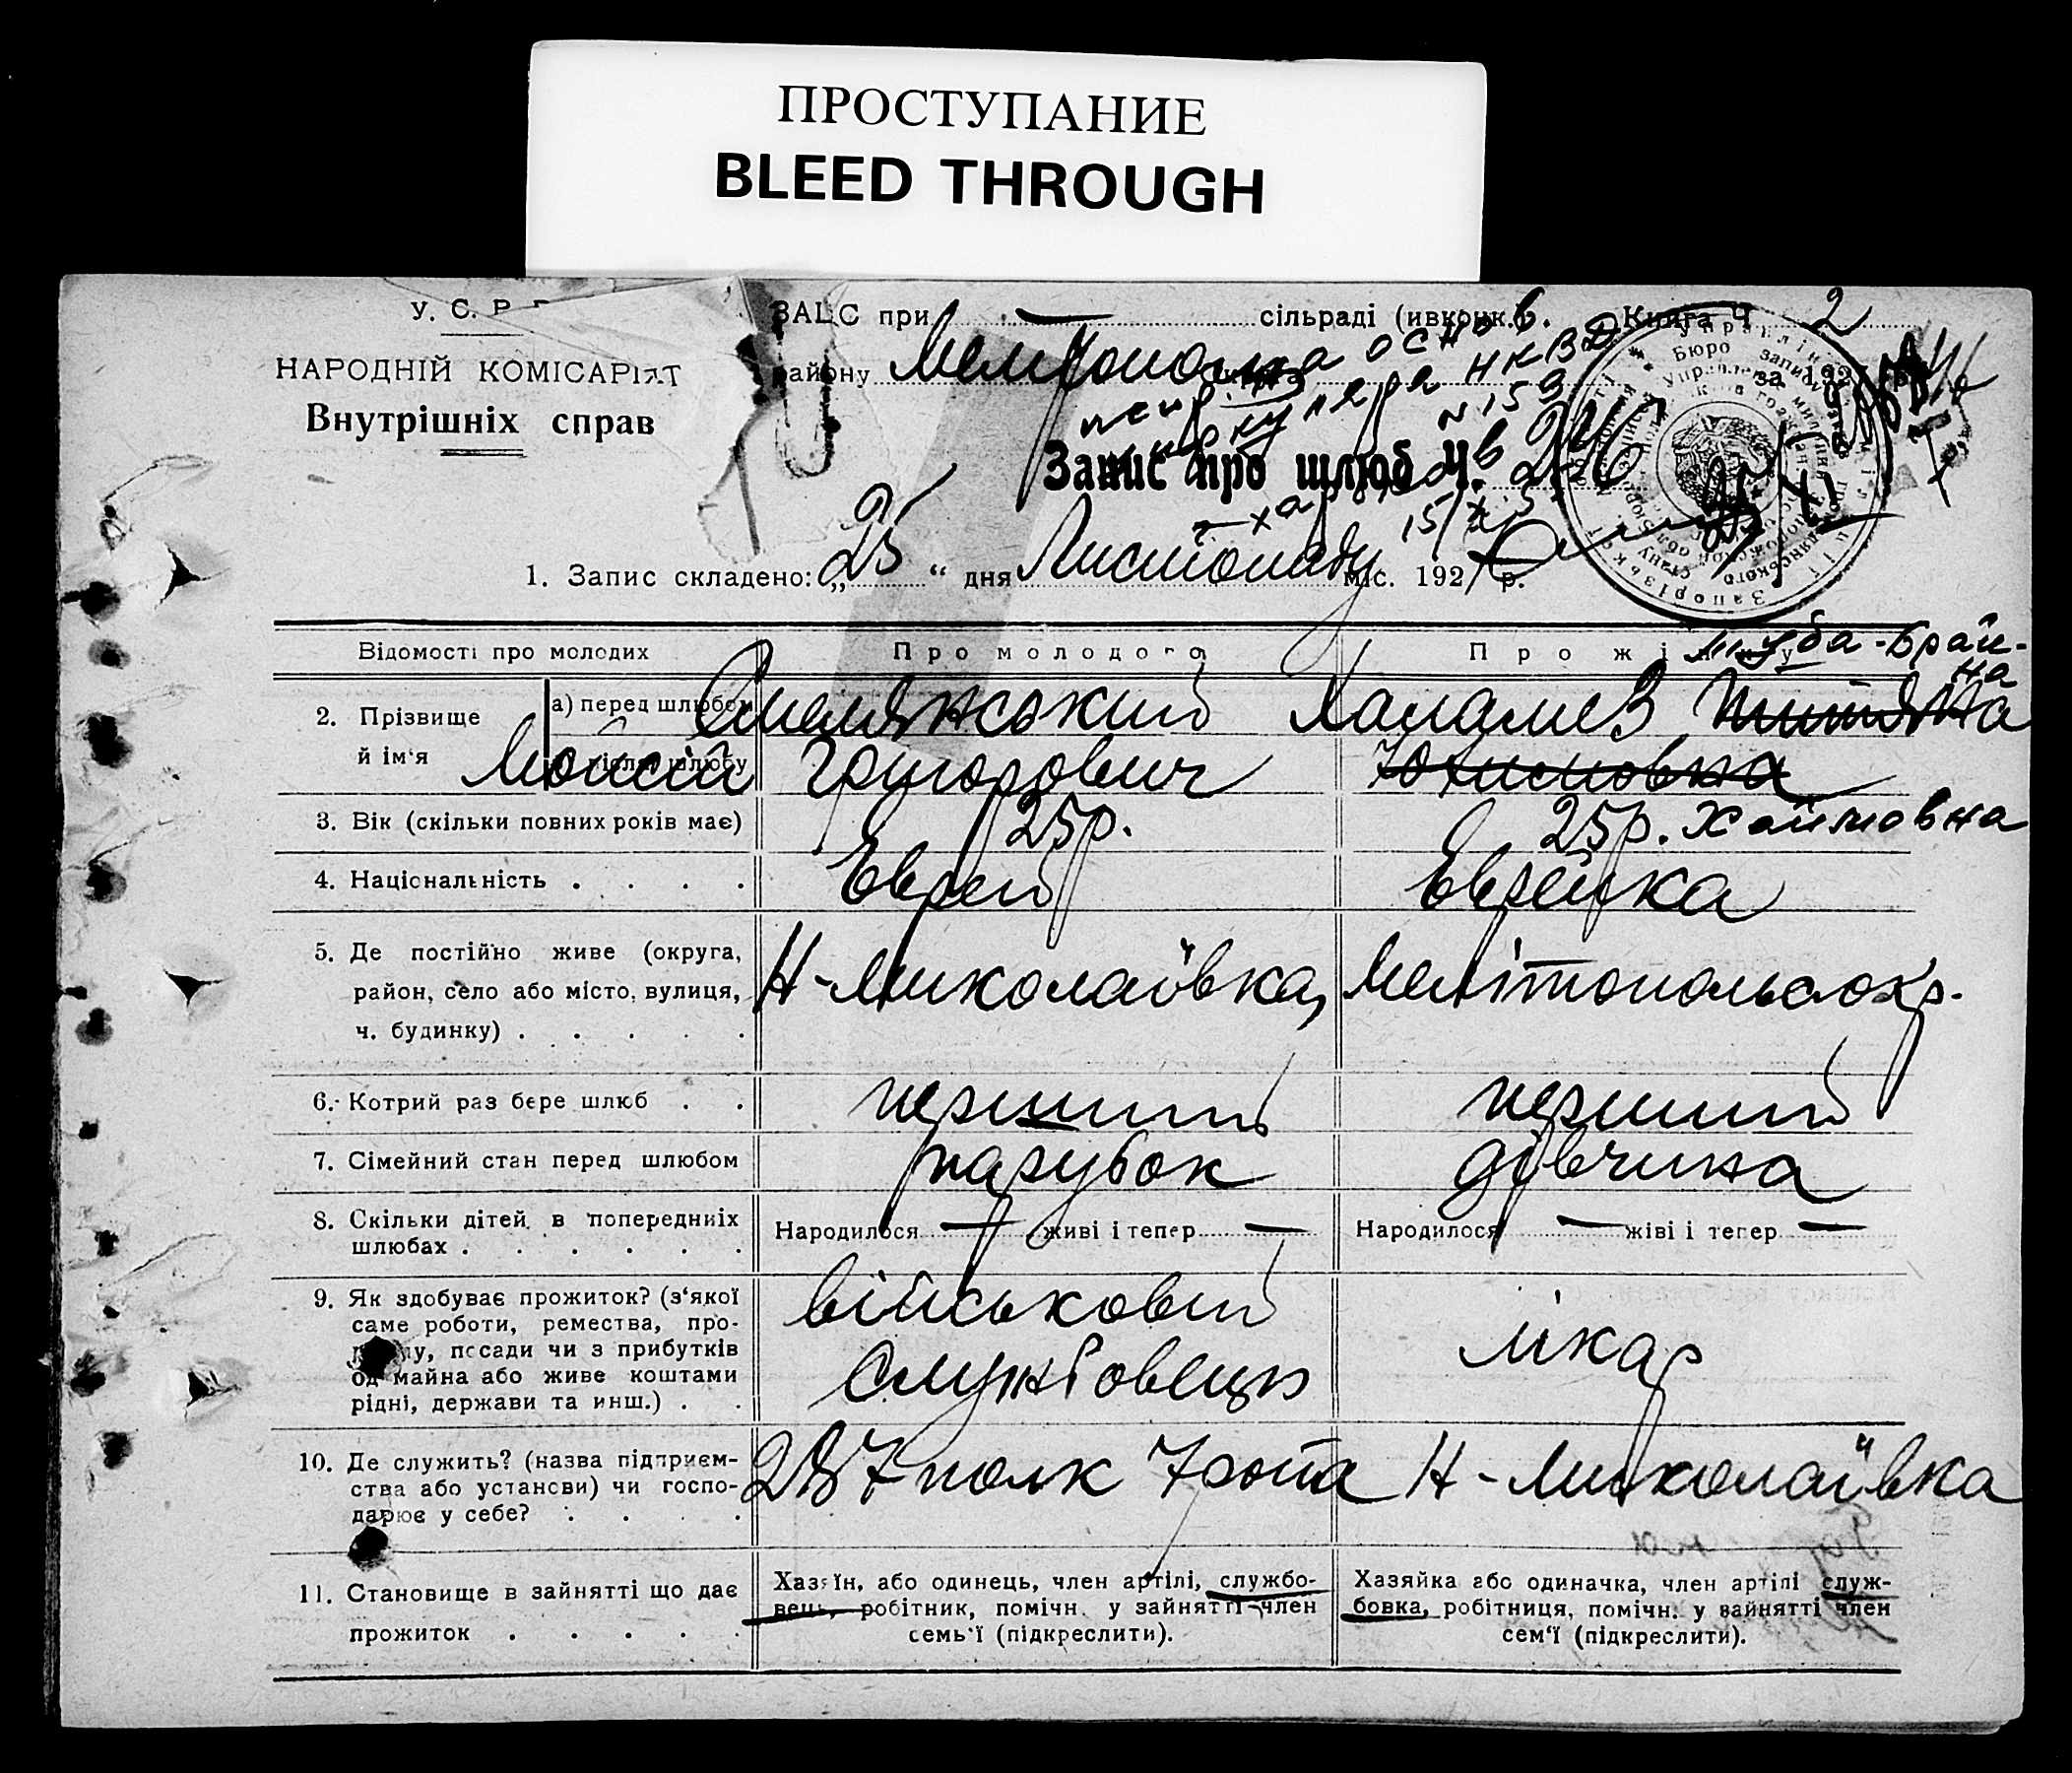 ПРОСТУПАНИЕ
BLEED THROUGH
У. С. Р.
НАРОДНІЙ КОМІСАРІЯТ
Внутрішніх справ
ЗАЦС при — сільраді Книга Ч 2
району
на основ.
циркуляра НКВД
N 159
Запис про шлюб Ч. 246
15/X
1. Запис складено: „25“ дня Листопаду міс. 192 р.
Відомості про молодих
Про молодого
Про жінку
Люба-Брай-
на
2. Прізвище
й ім'я
а) перед шлюбом
після шлюбу
Смелянський
Мойсій Григорович
Халамев
Юхимовна
Хаймовна
3. Вік (скільки повних років має)
25р.
25р.
4. Національність . . . .
Еврей
Еврейка
5. Де постійно живе (округа,
район, село або місто, вулиця,
ч. будинку) . . . . .
Н-Миколаївка,
Мелітопольс окр.
6. Котрий раз бере шлюб . .
перший
перший
7. Сімейний стан перед шлюбом
парубок
дівчина
8. Скільки дітей в попередниіх
шлюбах . . . . . .
Народилося — живі і тепер —
Народилося — живі і тепер —
9. Як здобуває прожиток? (з'якої
саме роботи, ремества, про-
мислу, посади чи з прибутків
од майна або живе коштами
рідні, держави та инш.) . .
військовий
службовець
лікар
10. Де служить? (назва підприєм-
ства або установи) чи госпо-
дарює у себе? . . . .
полк 7 рота
Н-Миколаївка
11. Становище в зайнятті що дає
прожиток . . . . .
Хазяїн, або одинець, член артілі, службо-
вець, робітник, помічн. у зайнятті член
семь'ї (підкреслити).
Хазяйка або одиначка, член артілі служ-
бовка, робітниця, помічн. у зайнятті член
сем'ї (підкреслити).